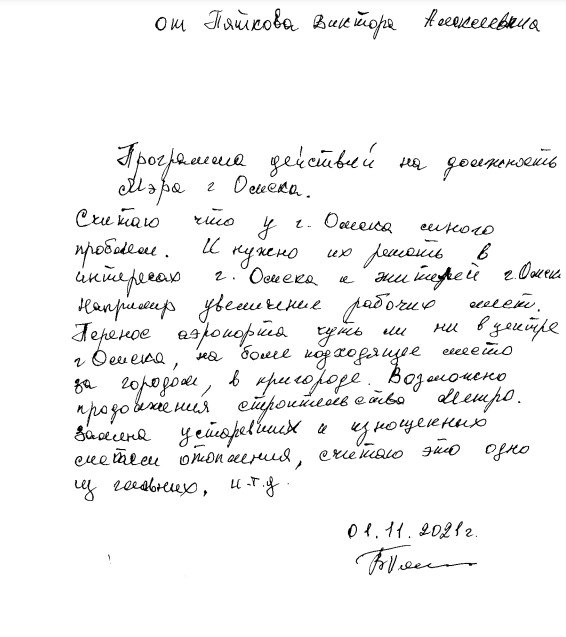 от Пяткова Виктора Алексеевича
Программа действий на должность
Мэра г Омска.
Считаю что у г. Омска много
проблем. И нужно их решать в
интересах г. Омска и жителей г. Омска
Например увеличение рабочих мест.
Перенос аэропорта чуть ли ни в центре
г Омска, на более подходящее место
за городом, в пригороде. Возможно
продолжения строительства Метро.
Замена устаревших и изношенных
систем отопления, считаю это одно
из главных, и.т.д.
01.11.2021г.